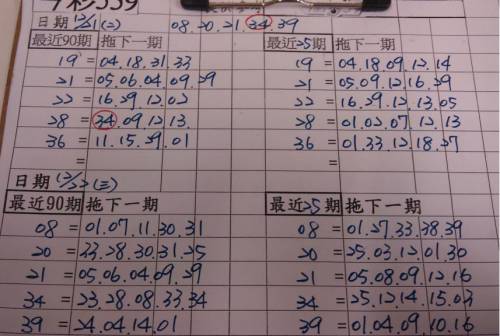 今彩539
日期 12/21(二) 08.20.21.34.39
最近90期 拖下一期 最近25期 拖下一期
19 = 04.18.31.33 19 = 04.18.09.12.14
21 = 05.06.04.09.29 21 = 05.09.12.16.29
22 = 16.29.12.02 22 = 16.29.12.13.05
28 = 34.09.12.13. 28 = 01.02.07.12.13
36 = 11.15.29.01 36 = 01.33.12.18.27
= =
日期 12/22(三)
最近90期 拖下一期 最近25期 拖下一期
08 = 01.07.11.30.31 08 = 01.27.33.38.39
20 = 23.28.30.31.25 20 = 25.03.12.01.30
21 = 05.06.04.09.29 21 = 05.08.09.12.16
34 = 23.28.08.33.34 34 = 25.12.14.15.03
39 = 24.04.14.01 39 = 01.04.09.10.16